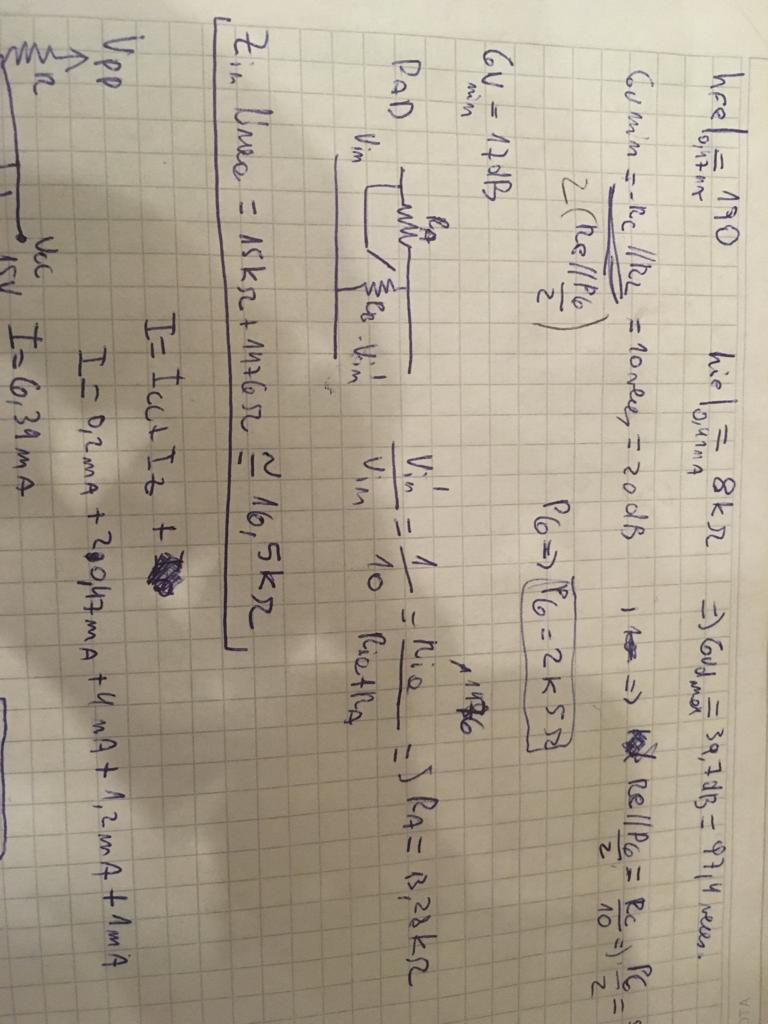 hFe|0,47mA = 190 hie|0,47mA = 8kΩ => Gvd max = 39,7dB = 97,4 veces.
Gv min = -Rc//RL / 2(Re//PG/2) = 10 veces = 20dB, => Re//PG/2 = Rc/10 => PG/2 =
PG => PG = 2k5Ω
Gv min = 17dB
PAD Vin RA RB Vin' Vin'/Vin = 1/10 = Rie/(Rie+RA) => RA = 13,28kΩ
1476
Zin linea = 15kΩ + 1476Ω ≅ 16,5kΩ
I = Icc + Iz +
Vpp I = 0,2mA + 2.0,47mA + 4mA + 1,2mA + 1mA
R Vcc 15V I = 6,34mA